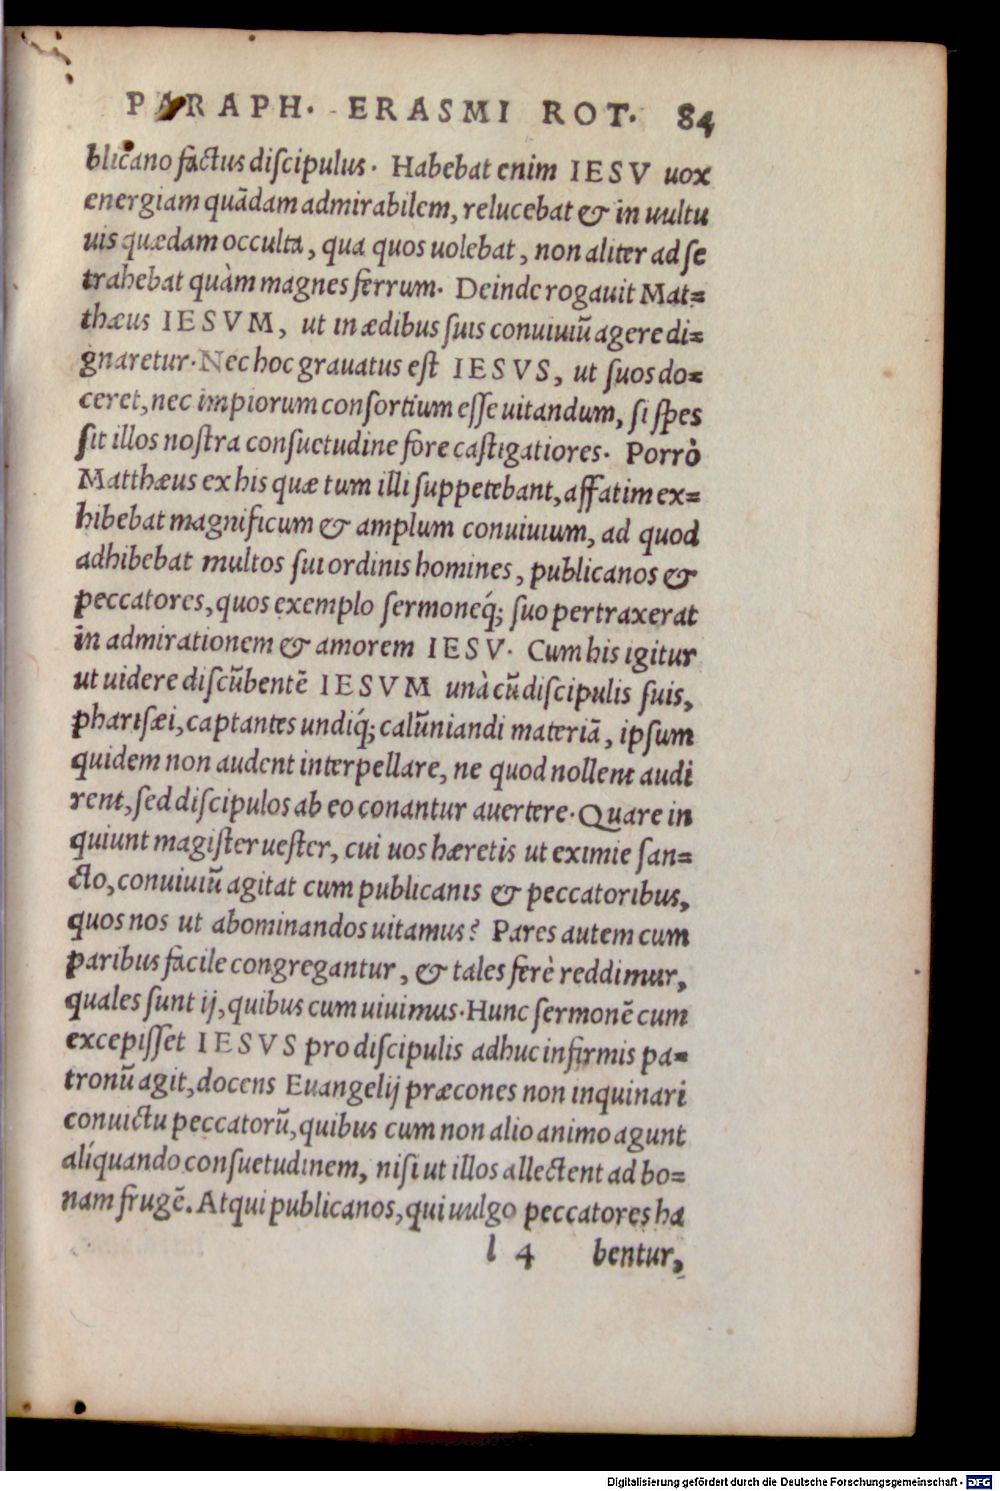 PARAPH. ERASMI ROT. 84
blicano factus diſcipulus. Habebat enim IESV uox
energiam quãdam admirabilem, relucebat & in uultu
uis quædam occulta, qua quos uolebat, non aliter ad ſe
trahebat quàm magnes ferrum. Deinde rogauit Mat=
thæus IESVM, ut in ædibus ſuis conuiuiũ agere di=
gnaretur. Nec hoc grauatus eſt IESVS, ut ſuos do=
ceret, nec impiorum conſortium eſſe uitandum, ſi ſpes
ſit illos noſtra conſuetudine fore caſtigatiores. Porrò
Matthæus ex his quæ tum illi ſuppetebant, affatim ex=
hibebat magnificum & amplum conuiuium, ad quod
adhibebat multos ſui ordinis homines, publicanos &
peccatores, quos exemplo ſermoneq́; ſuo pertraxerat
in admirationem & amorem IESV. Cum his igitur
ut uidere diſcũbentẽ IESVM unà cũ diſcipulis ſuis,
phariſæi, captantes undiq́; calũniandi materiã, ipſum
quidem non audent interpellare, ne quod nollent audi
rent, ſed diſcipulos ab eo conantur auertere. Quare in
quiunt magiſter ueſter, cui uos hæretis ut eximie ſan=
cto, conuiuiũ agitat cum publicanis & peccatoribus,
quos nos ut abominandos uitamus? Pares autem cum
paribus facile congregantur, & tales ferè reddimur,
quales ſunt ij, quibus cum uiuimus. Hunc ſermonẽ cum
excepiſſet IESVS pro diſcipulis adhuc infirmis pa=
tronũ agit, docens Euangelij præcones non inquinari
conuictu peccatorũ, quibus cum non alio animo agunt
alíquando conſuetudinem, niſi ut illos allectent ad bo=
nam frugẽ. Atqui publicanos, qui uulgo peccatores ha
l 4 bentur,
Digitalisierung gefördert durch die Deutsche Forschungsgemeinschaft - DFG